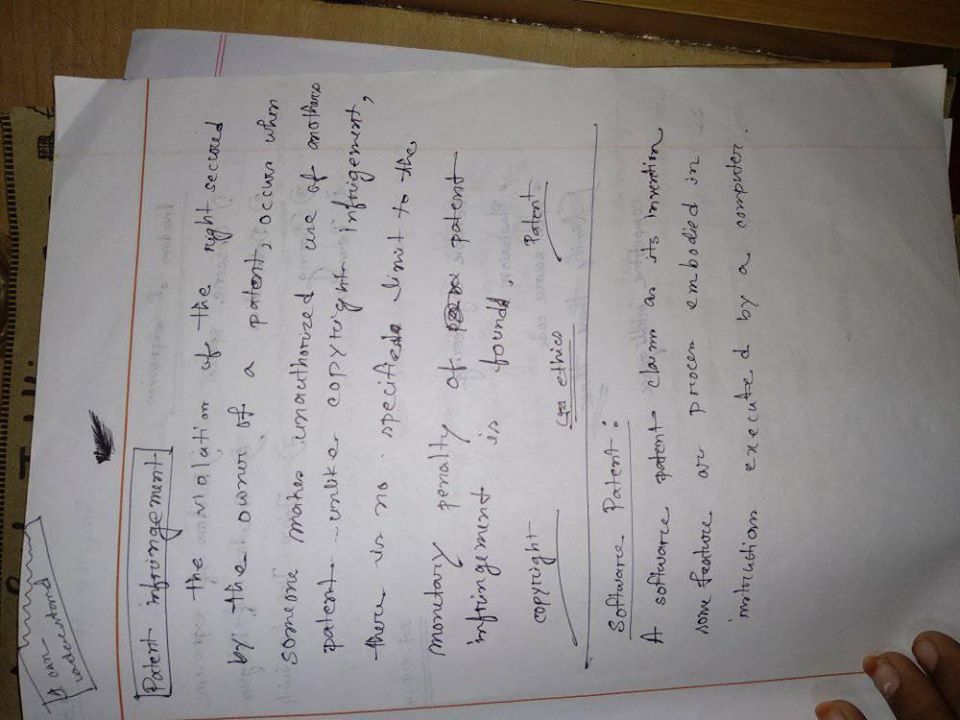 I can
understand
Patent infringement
the violation of the right secured
by the owner of a patent, occurs when
someone makes unauthorized use of another's
patent unlike copyright infringement,
there is no specified limit to the
monetary penalty of patent
infringement is found.
copyright ethics Patent
Software Patent:
A software patent claim as its invention
some feature or process embodied in
instruction executed by a computer.